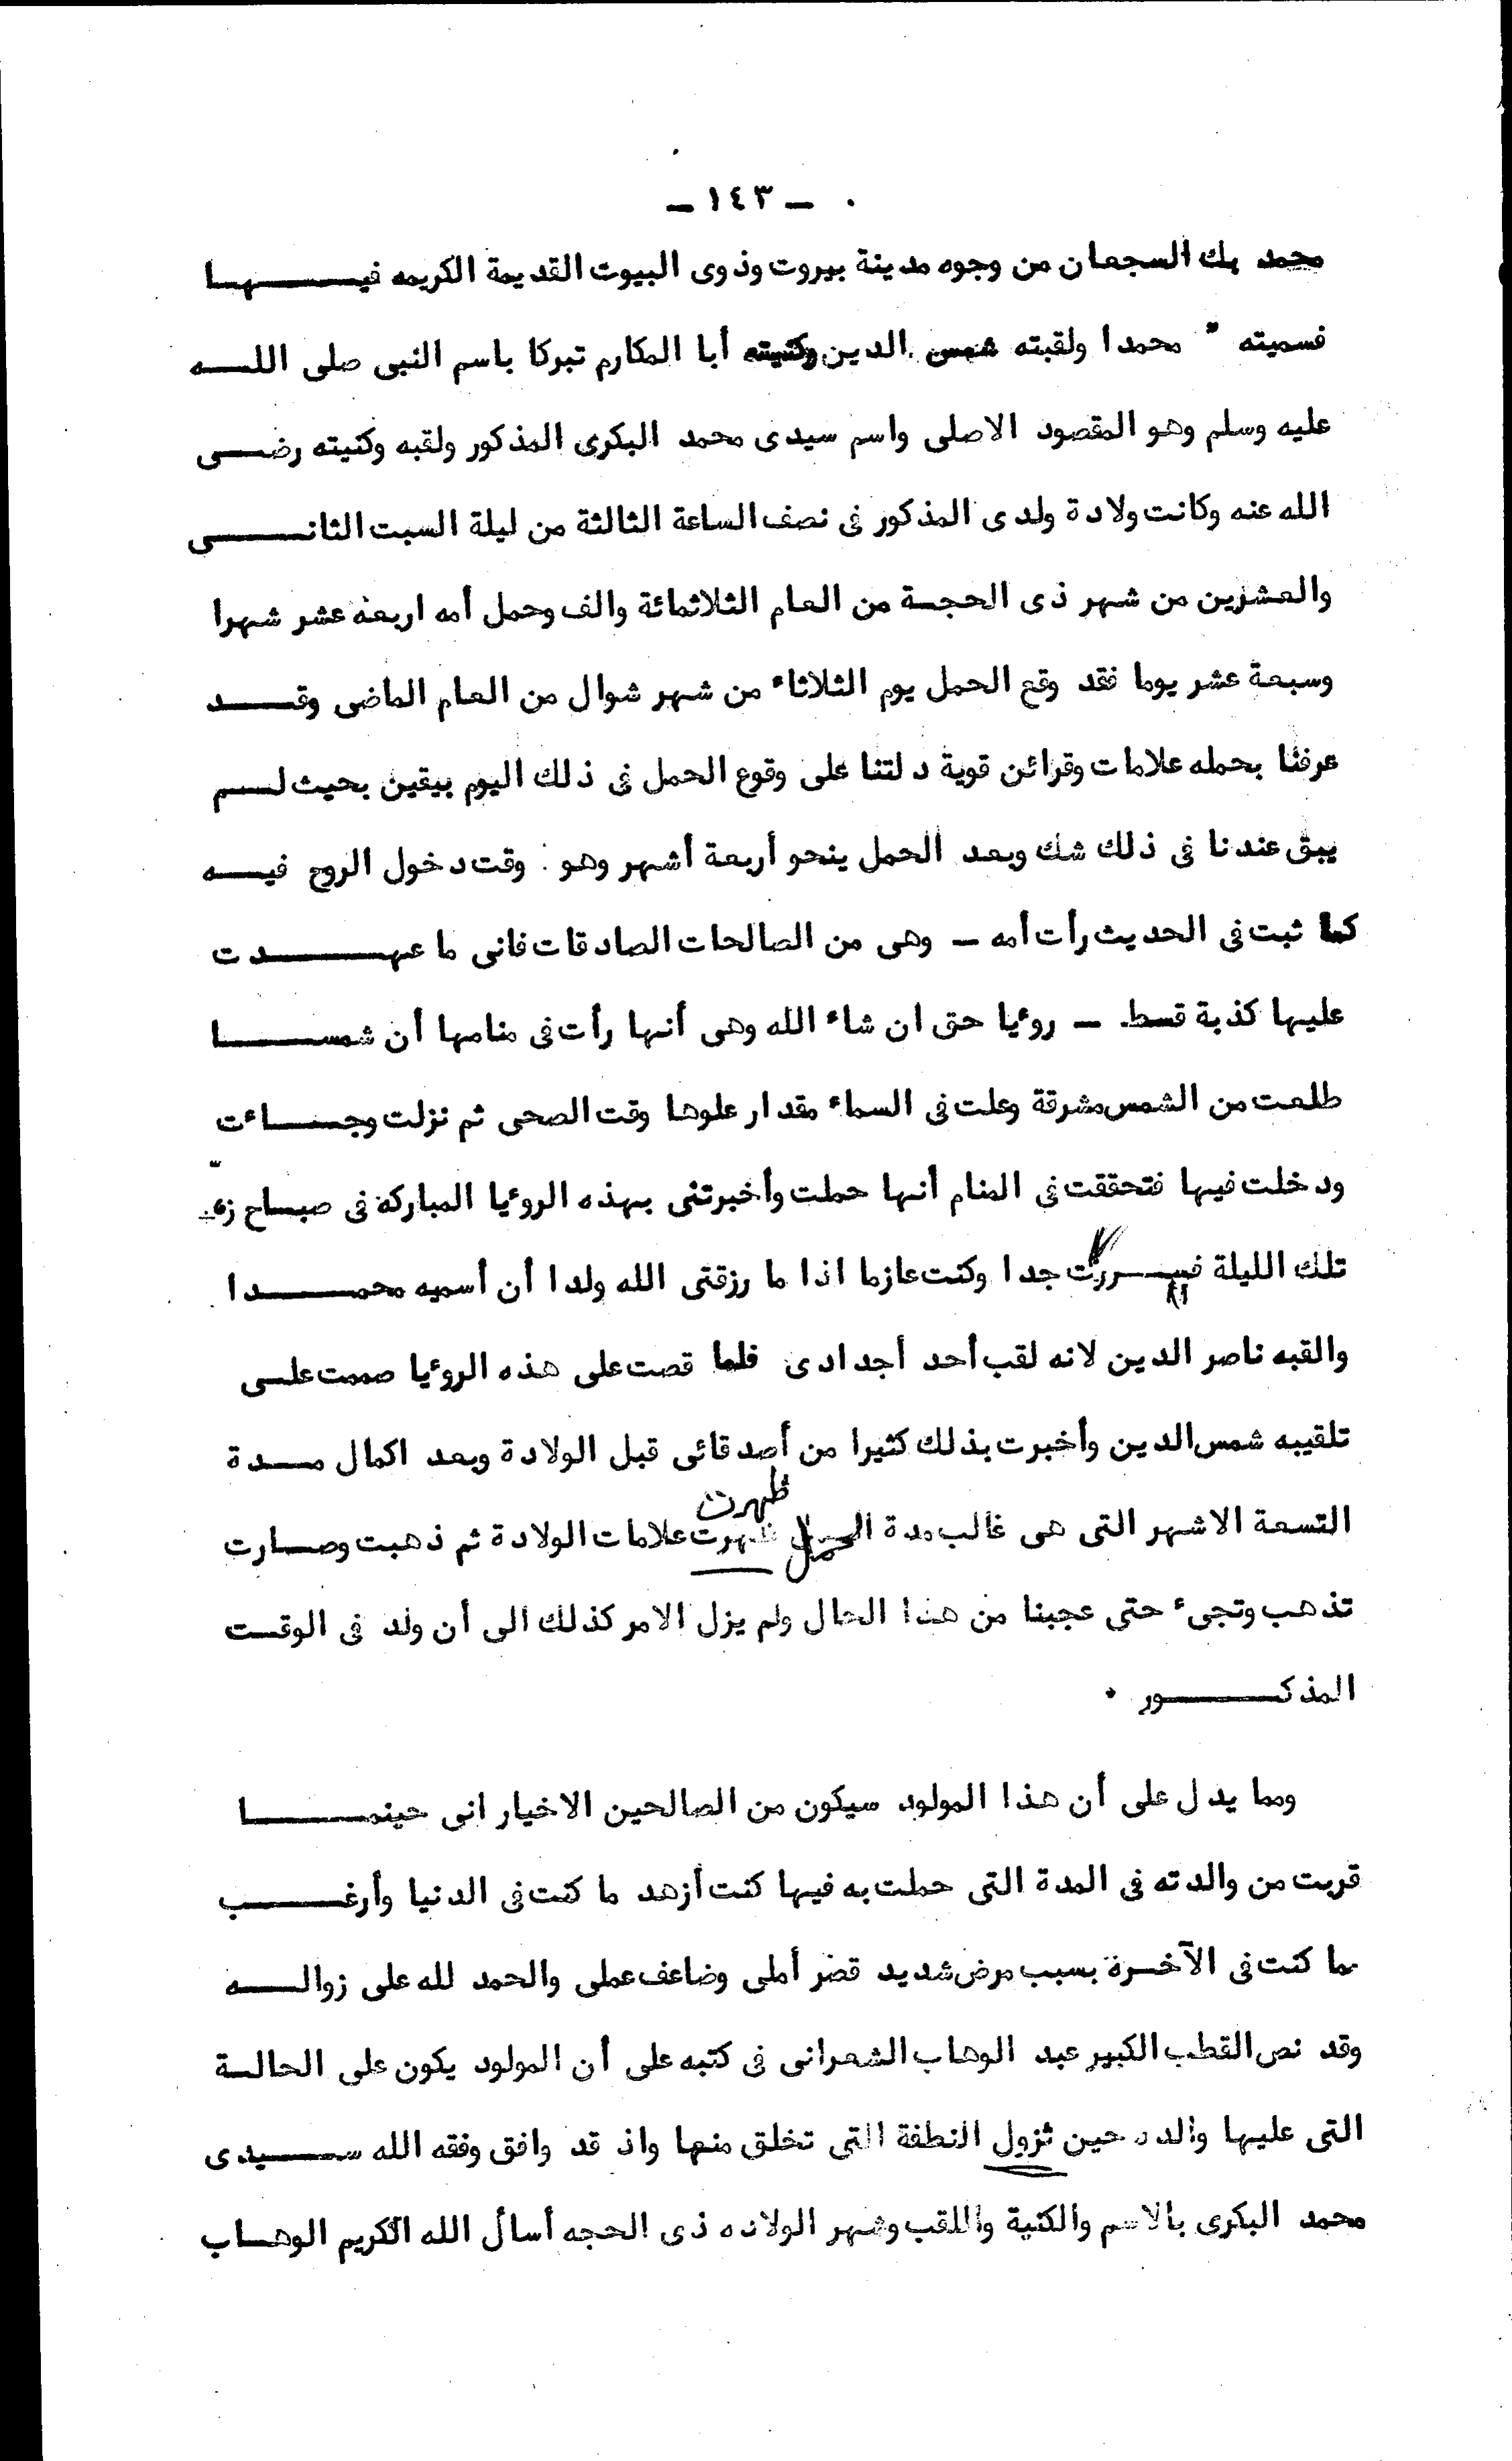 - ١٤٣ -
محمد بك السجعان من وجوه مدينة بيروت وذوى البيوت القديمة الكريمه فيها
فسميته " محمدا ولقبته شمس الدين وكنيته أبا المكارم تبركا باسم النبى صلى الله
عليه وسلم وهو المقصود الاصلى واسم سيدى محمد البكرى المذكور ولقبه وكنيته رضى
الله عنه وكانت ولادة ولدى المذكور فى نصف الساعة الثالثة من ليلة السبت الثانى
والعشرين من شهر ذى الحجة من العام الثلاثمائة والف وحمل أمه اربعة عشر شهرا
وسبعة عشر يوما فقد وقع الحمل يوم الثلاثاء من شهر شوال من العام الماضى وقد
عرفنا بحمله علامات وقرائن قوية دلتنا على وقوع الحمل فى ذلك اليوم بيقين بحيث لم
يبق عندنا فى ذلك شك وبعد الحمل بنحو أربعة أشهر وهو وقت دخول الروح فيه
كما ثبت فى الحديث رأت أمه - وهى من الصالحات الصادقات فانى ما عهدت
عليها كذبة قسط - روءيا حق ان شاء الله وهى أنها رأت فى منامها أن شمسا
طلعت من الشمس مشرقة وعلت فى السماء مقدار علوها وقت الصحى ثم نزلت وجاءت
ودخلت فيها فتحققت فى المنام أنها حملت وأخبرتنى بهذه الروءيا المباركة فى صباح
تلك الليلة فسررت جدا وكنت عازما اذا ما رزقتى الله ولدا أن أسميه محمدا
والقبه ناصر الدين لانه لقب أحد أجدادى فلما قصت على هذه الروءيا صممت على
تلقيبه شمس الدين وأخبرت بذلك كثيرا من أصدقائى قبل الولادة وبعد اكمال مدة
التسعة الاشهر التى هى غالب مدة الحمل ظهرت علامات الولادة ثم ذهبت وصارت
تذهب وتجىء حتى عجبنا من هذا الحال ولم يزل الامر كذلك الى أن ولد فى الوقت
المذكور .
ومما يدل على أن هذا المولود سيكون من الصالحين الاخيار انى حينما
قربت من والدته فى المدة التى حملت به فيها كنت أزهد ما كنت فى الدنيا وأرغب
ما كنت فى الآخرة بسبب مرض شديد قصر أملى وضاعف عملى والحمد لله على زواله
وقد نص القطب الكبير عبد الوهاب الشعرانى فى كتبه على أن المولود يكون على الحالة
التى عليها والده حين نزول النطفة التى تخلق منها واذ قد وافق وفقه الله سيدى
محمد البكرى بالاسم والكنية واللقب وشهر الولاده ذى الحجه أسأل الله الكريم الوهاب